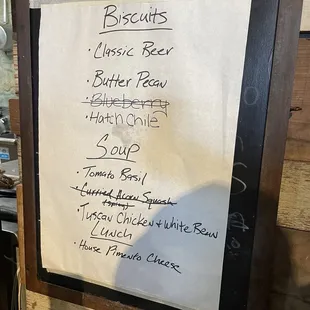 Biscuits
· Classic Beer
· Butter Pecan
· Blueberry
· Hatch Chile
Soup
· Tomato Basil
· Curried Acorn Squash
(spicy)
· Tuscan Chicken + White Bean
Lunch
· House Pimento Cheese